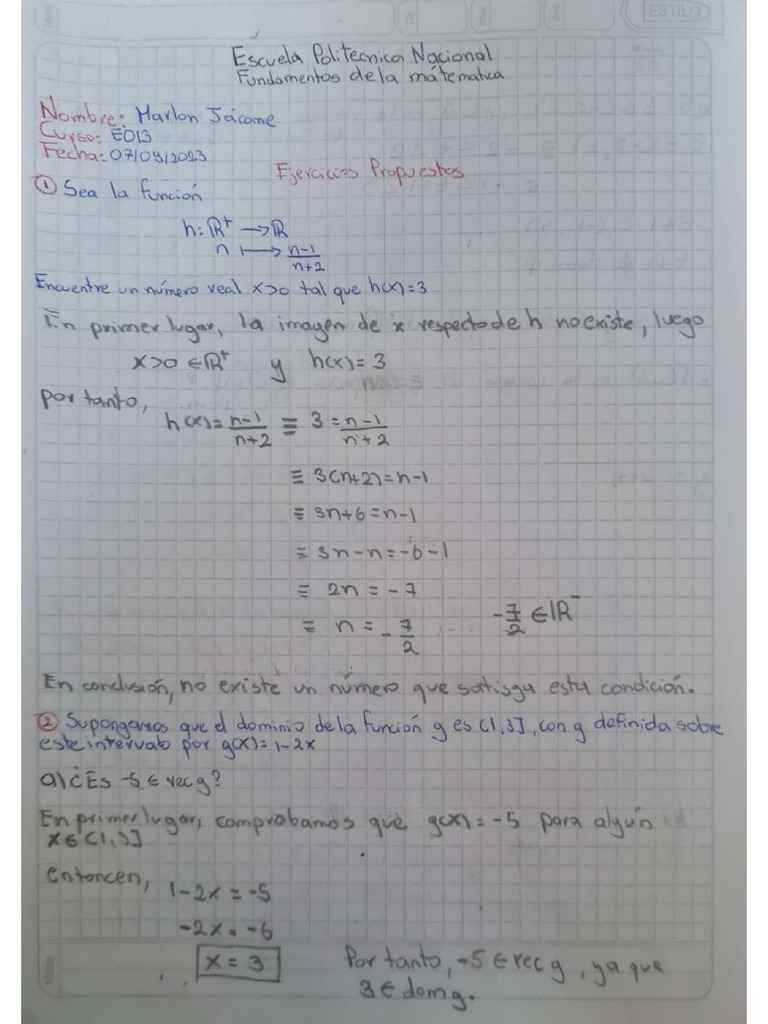 ESTILO
Escuela Politecnica Nacional
Fundamentos de la mátematica
Nombre: Marlon Jácome
Curso: E013
Fecha: 07/09/2023
Ejercicios Propuestos
① Sea la función
h: ℝ⁺ → ℝ
n ⟼ (n-1)/(n+2)
Encuentre un número real x>0 tal que h(x)=3
En primer lugar, la imagen de x respecto de h no existe, luego
x>0 ∈ ℝ⁺ y h(x) = 3
por tanto,
h(x) = (n-1)/(n+2) ≡ 3 = (n-1)/(n+2)
≡ 3(n+2) = n-1
≡ 3n+6 = n-1
≡ 3n-n = -6-1
≡ 2n = -7
≡ n = -7/2 -7/2 ∈ ℝ⁻
En conclusión, no existe un número que satisga esta condición.
② Supongamos que el dominio de la función g es (1,3], con g definida sobre
este intervalo por g(x) = 1-2x
a) ¿Es -5 ∈ rec g?
En primer lugar, comprobamos que g(x) = -5 para algún
x ∈ (1,3]
entoncen,
1-2x = -5
-2x = -6
x = 3
Por tanto, -5 ∈ rec g, ya que
3 ∈ dom g.